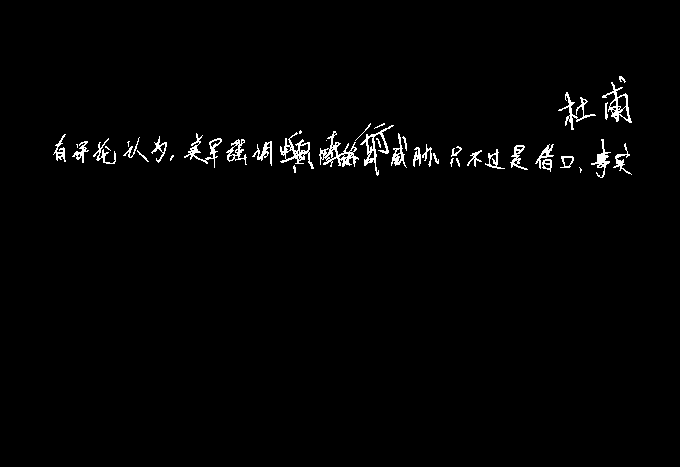 杜甫
有评论认为，英军强调威胁只不过是借口，事实